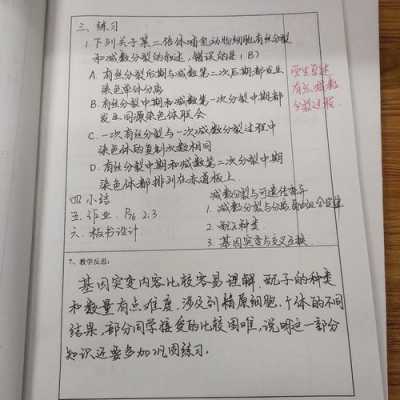 三、练习
1. 下列关于某二倍体哺乳动物细胞有丝分裂
和减数分裂的叙述,错误的是(B)
A. 有丝分裂后期与减数第二次后期都发生
染色单体分离
B. 有丝分裂中期和减数第一次分裂中期都
发生同源染色体联会
C. 一次有丝分裂与一次减数分裂过程中
染色体的复制次数相同
D. 有丝分裂中期和减数第二次分裂中期
染色体都排列在赤道板上
学生复述
有丝、减数
分裂过程.
四 小结
五. 作业. P6 2.3
六. 板书设计
减数分裂与可遗传变异
1. 减数分裂与分离
2. 配子种类
3. 基因突变与交叉互换
7、教学反思:
基因突变内容比较容易理解,配子的种类
和数量有点难度,涉及到精原细胞、个体的不同
结果,部分同学接受的比较困难,说明这一部分
知识还要多加巩固练习.